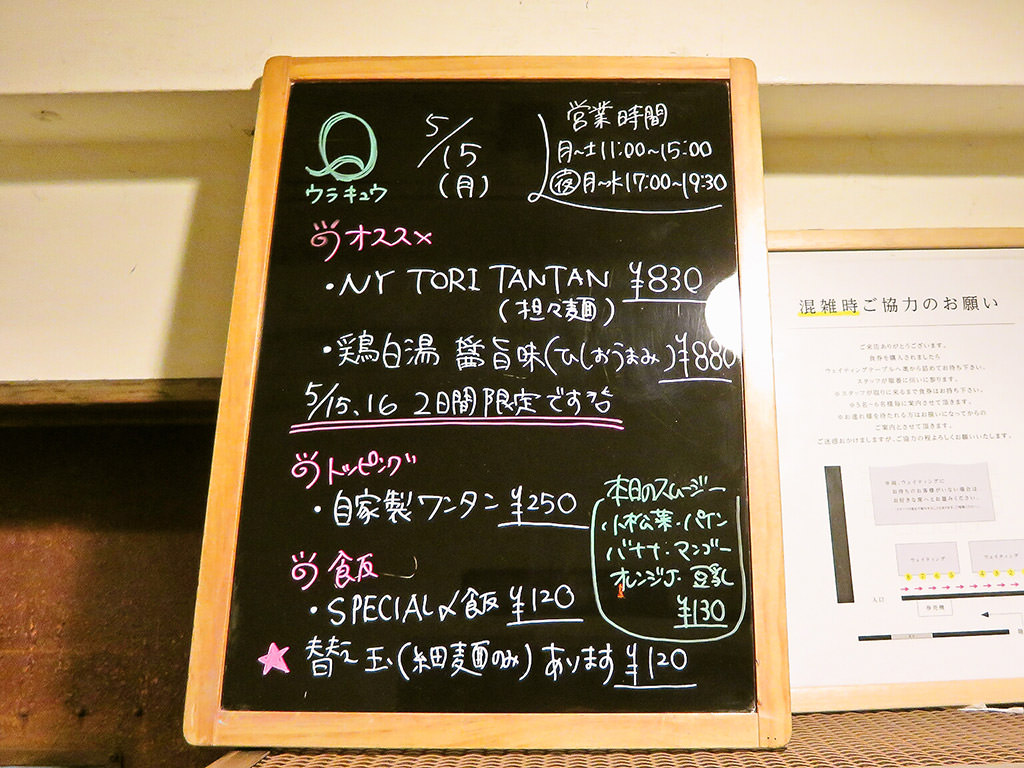 ウラキュウ
5/15
(月)
営業時間
月~土 11:00~15:00
夜 月~水 17:00~19:30
オススメ
・NY TORI TANTAN ¥830
(担々麺)
・鶏白湯 醤旨味(ひしおうまみ) ¥880
5/15.16 2日間限定です
トッピング
・自家製ワンタン ¥250
飯
・SPECIAL〆飯 ¥120
★ 替え玉(細麺のみ)あります ¥120
本日のスムージー
小松菜・パイン
バナナ・マンゴー
オレンジJ・豆乳
¥130
混雑時ご協力のお願い
ご来店ありがとうございます。
食券を購入されましたら
ウェイティングテーブルへ奥から詰めてお待ち下さい。
スタッフが順番に伺いに参ります。
※スタッフが取りに来るまで食券はお持ち下さい。
※5名~6名様毎に案内させて頂きます。
※お連れ様を待たれる方はお揃いになってからの
ご案内とさせて頂きます。
ご迷惑おかけしますが、ご協力の程よろしくお願いいたします。
お待ちのお客様がいない場合は
お好きな席へとお並みください。
ウェイティング
ウェイティング
8 7 6 5
4 3 2
入口
券売機